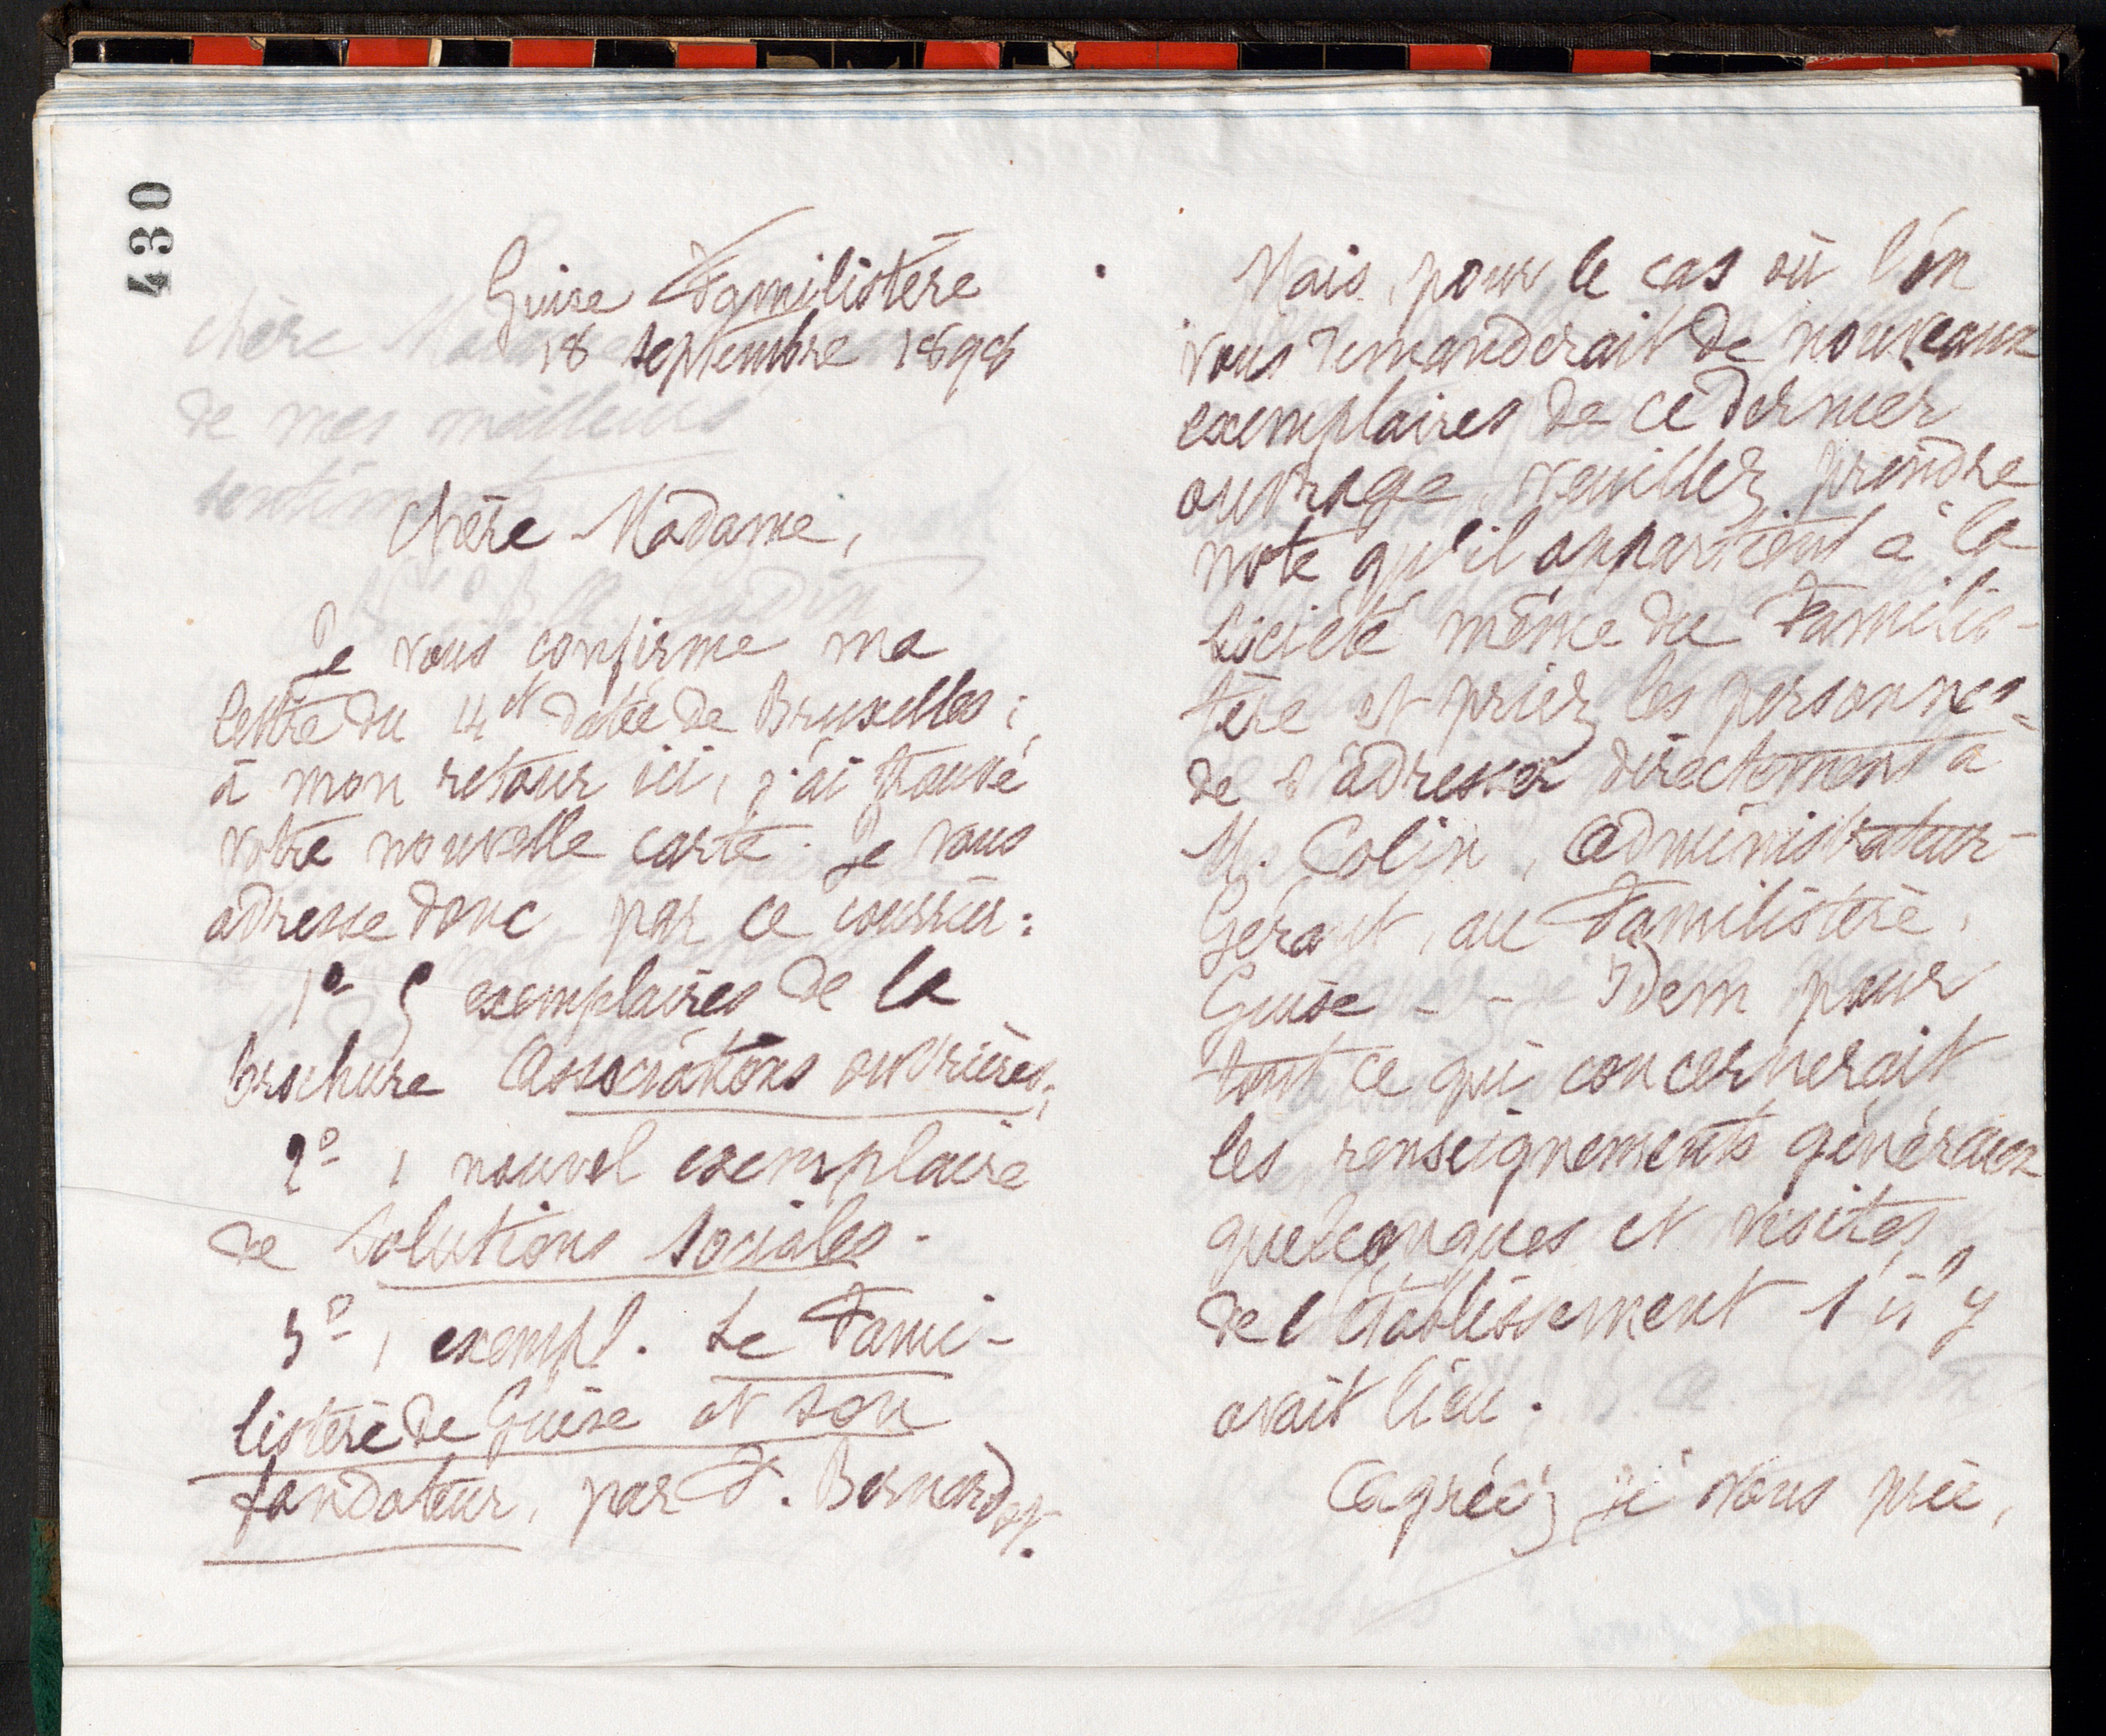 430
Guise Familistère
18 septembre 1898
Chère Madame,
Je vous confirme ma
lettre du 14 ct datée de Bruxelles ;
à mon retour ici, j'ai trouvé
votre nouvelle carte. Je vous
adresse donc par ce courrier :
1o 5 exemplaires de la
brochure Associations ouvrières ;
2o 1 nouvel exemplaire
de Solutions sociales.
3o 1 exempl. Le Fami-
listère de Guise et son
fondateur, par F. Bernardot.
Mais, pour le cas où l'on
vous demanderait de nouveaux
exemplaires de ce dernier
ouvrage, veuillez prendre
note qu'il appartient à la
Société même du Familis-
tère et priez les personnes
de s'adresser directement à
M. Colin, Administrateur-
Gérant, au Familistère,
Guise - - Idem pour
tout ce qui concernerait
les renseignements généraux
quelconques et visites
de l'établissement s'il y
avait lieu.
Agréez, je vous prie,
chère Madame
de mes meilleurs
sentiments